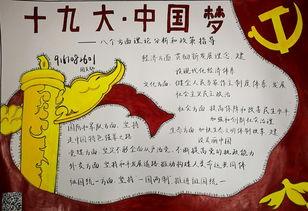 十九大·中国梦
——八个方面理论分析和政策指导
9161082601
经济方面 贯彻新发展理念，建
设现代化经济体系
文化方面，健全人民当家作主制度体系，发展
社会主义民主政治
社会方面，提高保障和改善民生水平
加强和创新社会治理
国防和军队方面，坚持
走中国特色强军之路
生态方面 加快生态文明体制改革，建
设美丽中国
党建方面，坚定不移全面从严治党，不断提高党的执政能力
外交方面，坚持和平发展道路，推动构建人类命运共同体
祖国统一方面，坚持“一国两制”，推进祖国统一